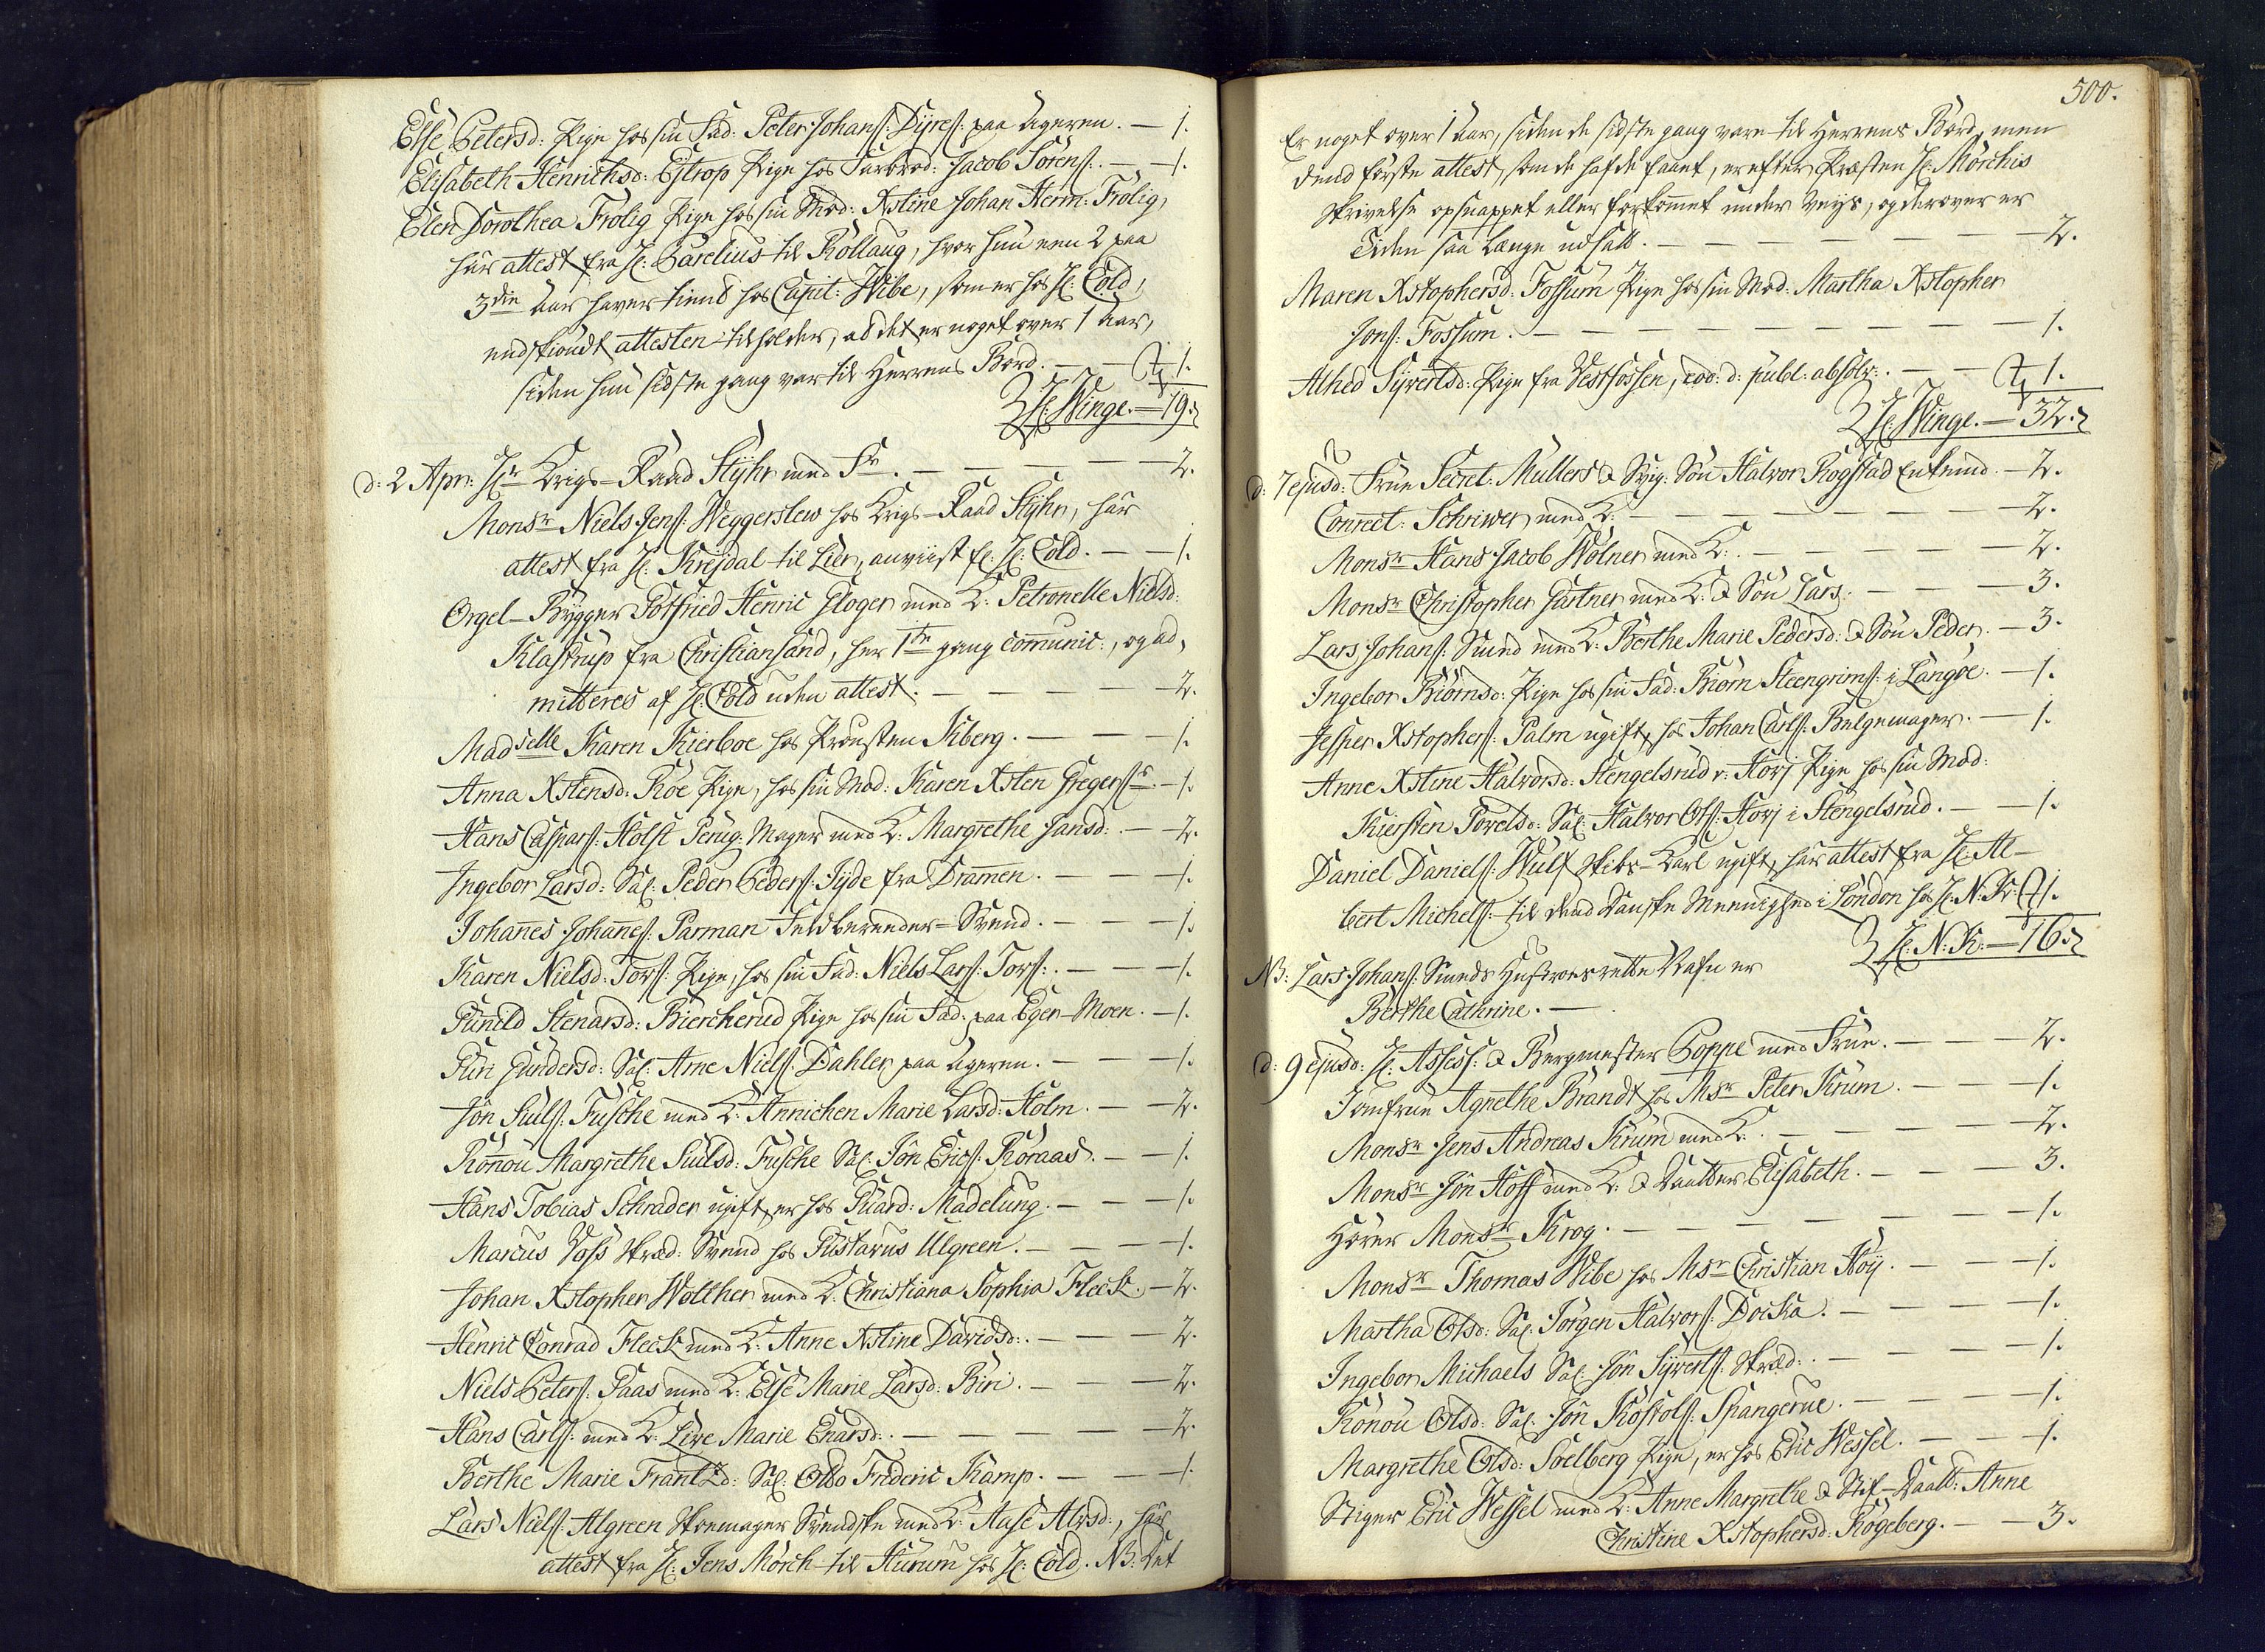 Else Petersd: Pige hos sin Fad: Peter Johanſ: Dÿreſ: paa Ageren. — 1.
Elisabeth Henrichsd: Estrop Pige hos Farbrod: Jacob Sörenſ:. — 1.
Elen Dorothea Frölig Pige hos sin Mod: Xstine Johan Herm: Frölig,
här attest fra H: Barelius til Rollaug, hvor hun nen 2 paa
3die Aar haver tient hos Capit: Wibe, som er hos H: Cold,
endskiöndt attesten tilholder, ad det er noget over 1 Aar,
siden hun sidste gang var til Herrens Bord. — 1.
H: Winge. — 19.
d: 2 Apr: Hr Krigs-Raad Stÿhr med Fr. — 2.
Monsr Niels Jenſ: Weggerslew hos Krigs-Raad Stÿhr, här
attest fra H: Krejdal til Lier, anviist fl: H: Cold. — 1.
Orgel-Bÿgger Gotfried Henric Gloger med K: Petronelle Nielsd:
Klastrup fra Christiansand, her 1te gang com̄unic:, og ad,
mitteres af H: Cold uden attest. — 2.
Madselle Karen Kierboe hos Provsten Kberg. — 1.
Anna Xstensd: Röe Pige, hos sin Mod: Karen Xsten Gregersſ. — 1.
Hans Casparſ: Holst Perug-Mager med K: Margrethe Jansd:. — 2.
Ingebor Larsd: Sal: Peder Pederſ: Jÿde fra Dram̄en. — 1.
Johan̄es Johan̄eſ: Parman Feldbereeder-Svend. — 1.
Karen Nielsd: Torſ: Pige, hos sin Fad: Niels Larſ: Torſ:. — 1.
Gunild Stenarsd: Bierckerud Pige hos sin Fad: paa Eger-Moen. — 1.
Guri Gundersd: Sal: Arne Nielſ: Dahler paa Ageren. — 1.
Jön Siulſ: Fusche med K: Annichen Marie Larsd: Holm. — 2.
Rönnou Margrethe Siulsd: Fusche Sal: Jön Ericſ: Röraas. — 1.
Hans Tobias Schrader ugift, er hos Guard: Madelung. — 1.
Marcus Voss Skræd: Svend hos Gustavus Ulgreen. — 1.
Johan Xstopher Wolther med K: Christiana Sophia Fleesk. — 2.
Henric Conrad Fleesk med K: Anne Xstine Davidsd:. — 2.
Niels Peterſ: Paas med K: Else Marie Larsd: Biri. — 2.
Hans Carlſ: med K: Live Marie Enarsd:. — 2.
Berthe Marie Frantzd: Sal: Otto Frideric Kamp. — 1.
Lars Nielſ: Algreen Skomager Svendske med K: Aase Alvsd:, här
attest fra H: Jens Mörch til Hurum hos H: Cold. NB: Det
500.
Er noget over 1 Aar, siden de sidste gang vare til Herrens Bord, men
dend förste attest, som de hafde faaet, er efter Præsten H: Mörchis
Skrivelse opsnappet eller forkom̄et under Veÿs, og derover er
Tiden saa længe udsatt. — 2.
Maren Xstophersd: Fossum Pige hos sin Mod: Martha Xstopher
Jonſ: Fossum. — 1.
Alhed Sÿvertsd: Pige fra Vestfossen, eod: d: publ: absolv:. — 1.
H: Winge. — 32.
d: 7 ejusd: Frue Secret: Mullers & Svig-Sön Halvor Rogstad Enkemd. — 2.
Conrect: Schriwer med K: — 2.
Monsr Hans Jacob Wölner med K:. — 2.
Monsr Christopher Gartner med K: & Sön Lars. — 3.
Lars Johanſ: Smed med K: Berthe Marie Pedersd: & Sön Peder. — 3.
Ingebor Biörnsd: Pige hos sin Fad: Biörn Steengrimſ: i Langöe. — 1.
Jesper Xstopherſ: Palm ugift, hos Johan Carlſ: Belgemager. — 1.
Anne Xstine Halvorsd: Stengelsrud v: Korj Pige hos sin Mod:
Kiersten Torelsd: Sal: Halvor Olſ: Korj i Stengelsrud. — 1.
Daniel Danielſ: Wulf Skibs-Karl ugift, här attest fra H: Al-
bert Michelſ: til dend Danske Meenighed i London hos H: N: K: 1.
H: N: K: — 16.
NB: Lars Johanſ: Smeds Hustroes rette Nafn er
Berthe Cathrine. —
d: 9 ejusd: H: Assess: & Bergmester Poppe med Frue. — 2.
Jomfrue Agnethe Brandt hos Msr Peter Krum. — 1.
Monsr Jens Andreas Krum med K:. — 2.
Monsr Jön Hoff med K: & Daatter Elisabeth. — 3.
Hörer Monsr Krog. — 1.
Monsr Thomas Wibe hos Msr Christian Höÿ. — 1.
Martha Olsd: Sal: Jörgen Halvorſ: Docka. — 1.
Ingebor Michaels Sal: Jön Sÿvertſ: Skræd:. — 1.
Rönou Olsd: Sal: Jön Roſtolſ: Spangerue. — 1.
Margrethe Olsd: Soelberg Pige, er hos Eric Wessel. — 1.
Stiger Eric Wessel med K: Anne Margrethe & Stif-Daatt: Anne
Christine Xstophersd: Rogeberg. — 3.